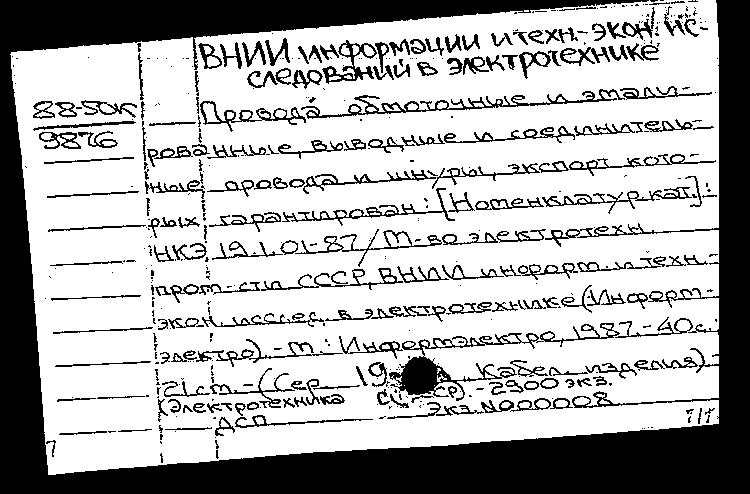 ВНИИ информации и техн.-экон. ис-
следований в электротехнике
88-50к
9876
Провода обмоточные и эмали-
рованные, выводные и соединитель-
ные провода и шнуры, экспорт кото-
рых гарантирован: [Номенклатур. кат.]:
НКЭ 19.1.01-87/М-во электротехн.
пром-сти СССР, ВНИИ информ. и техн.-
экон. исслед. в электротехнике (Информ-
электро).-М.: Информэлектро, 1987.-40с.;
21см.-(Сер. 19 Кабел. изделия)-
(Электротехника СССР).-2900 экз.
ДСП Экз. N000008